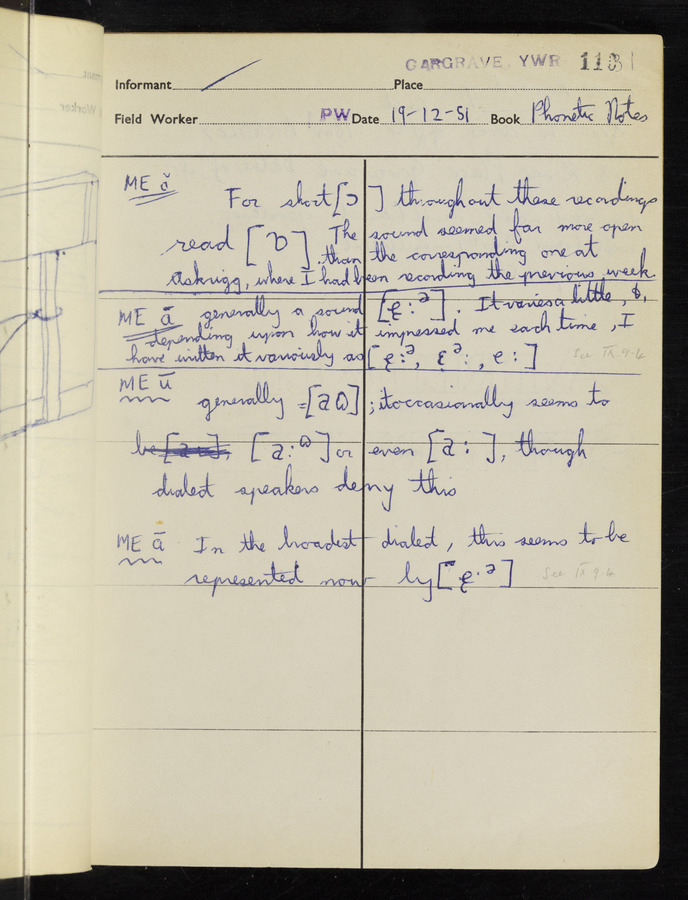 GARGRAVE, YWR 1131
Informant Place
Field Worker PW Date 19-12-51 Book Phonetic Notes
ME ŏ For short [ɔ] throughout these recordings
read [ɒ]. The sound seemed far more open
than the corresponding one at
Askrigg, where I had been recording the previous week.
ME ā generally a sound [ę:ᵊ]. It varies a little, &,
depending upon how it impressed me each time, I
have written it variously as [ę:ᵊ, ɛᵊ:, e:] See IX.9.6
ME ū generally = [aʊ]; it occasionally seems to
be [a:ᶷ] or even [a:], though
dialect speakers deny this
ME ā In the broadest dialect, this seems to be
represented now by [ę·ᵊ] See IX 9.6